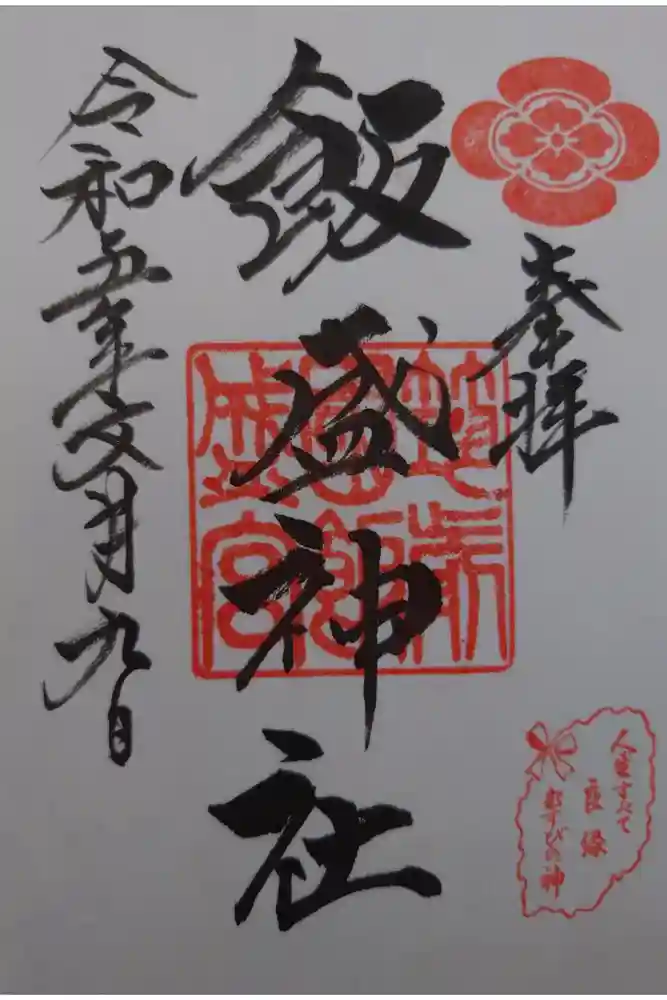 奉拝
飯盛神社
令和五年文月九日
筑前
國飯
盛宮
人生すべて
良縁
むすびの神